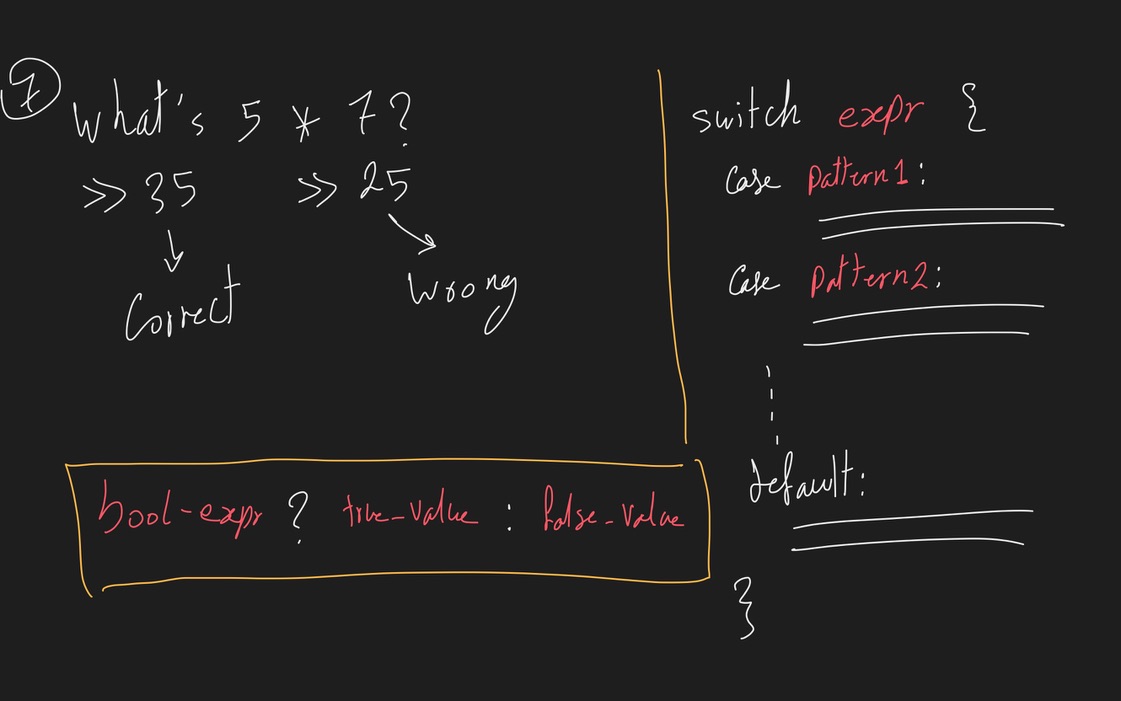 7
What's 5 * 7?
>> 35 >> 25
Correct
Wrong
bool-expr ? true_value : false_value
switch expr {
case pattern1:
case pattern2:
default:
}